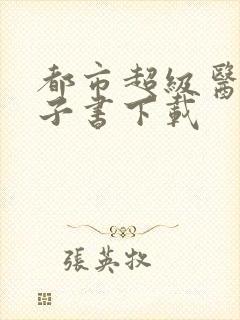 都市超級醫
子書下載
張英牧